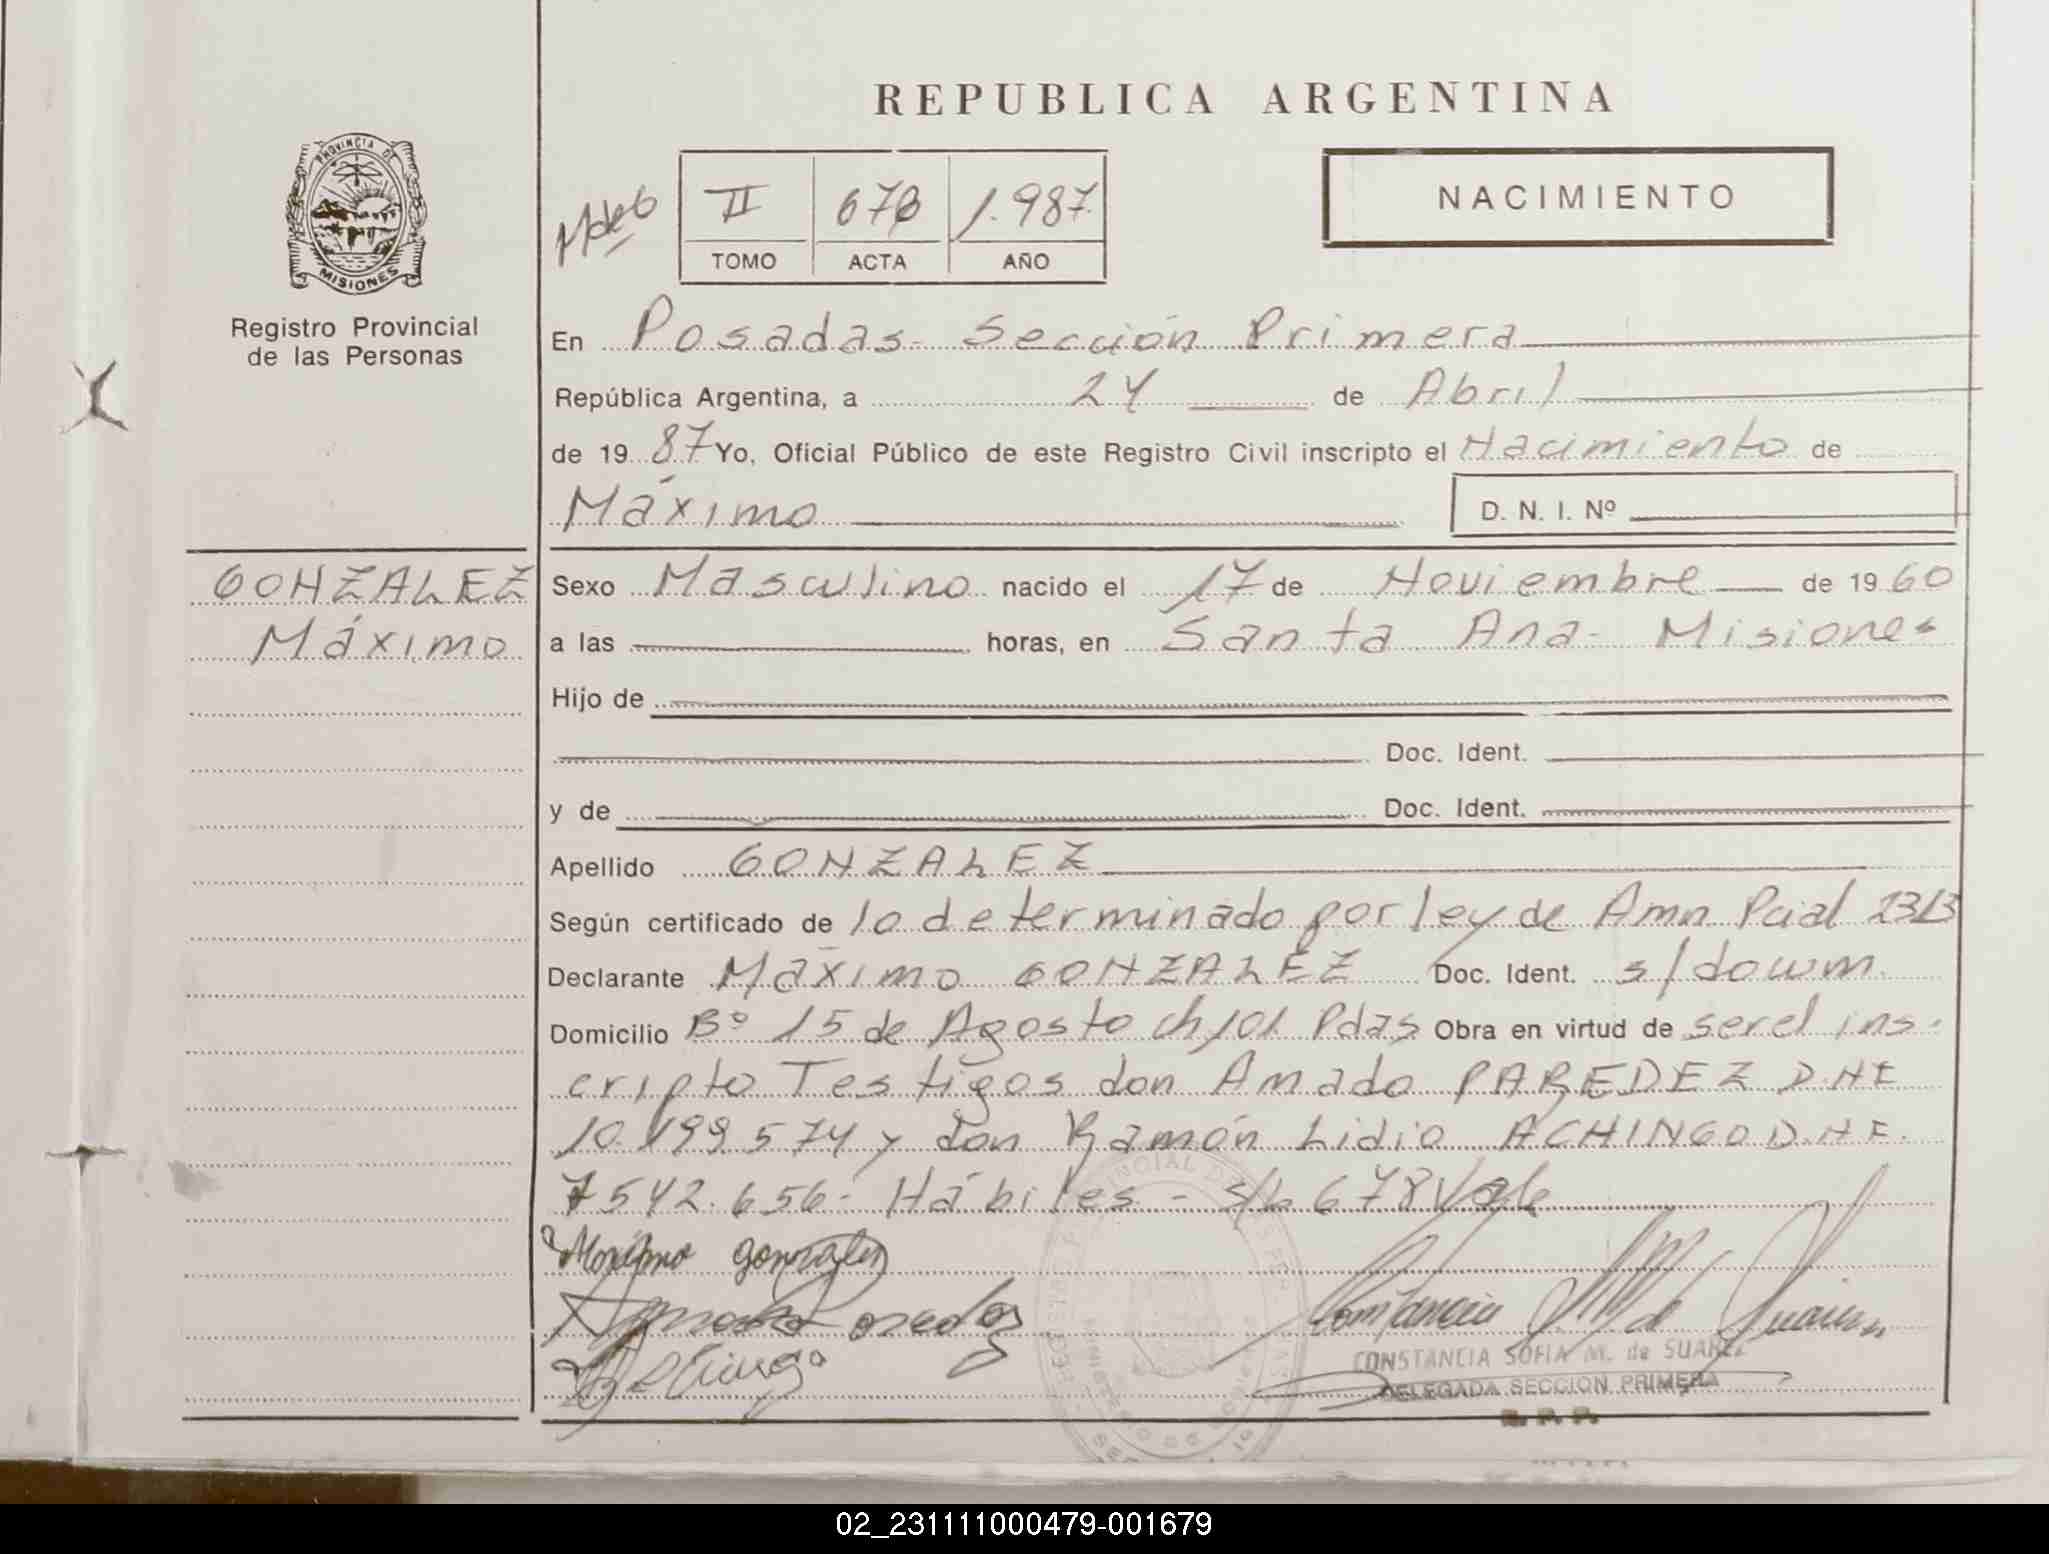 REPUBLICA ARGENTINA
PROVINCIA DE
MISIONES
Registro Provincial
de las Personas
II 678 1.987.
TOMO ACTA AÑO
NACIMIENTO
En Posadas- Sección Primera
República Argentina, a 24 de Abril
de 19 87 Yo, Oficial Público de este Registro Civil inscripto el Nacimiento de
Máximo D. N. I. Nº
GONZALEZ
Máximo
Sexo Masculino nacido el 17 de Noviembre de 19 60
a las horas, en Santa Ana- Misiones
Hijo de
Doc. Ident.
y de Doc. Ident.
Apellido GONZALEZ
Según certificado de lo determinado por ley de Amn Pcial 2313
Declarante Máximo GONZALEZ Doc. Ident. s/docum.
Domicilio Bº 15 de Agosto ch 101 Pdas Obra en virtud de ser el ins-
cripto Testigos don Amado PAREDEZ D.N.I
10.199.574 y don Ramón Lidio ACHINGO D.N.I.
7542.656- Hábiles - s/b 678 Vale
Máximo gonzalez
Constancia M de Suarez
CONSTANCIA SOFIA M. de SUAREZ
DELEGADA SECCION PRIMERA
R. P. P.
02_231111000479-001679